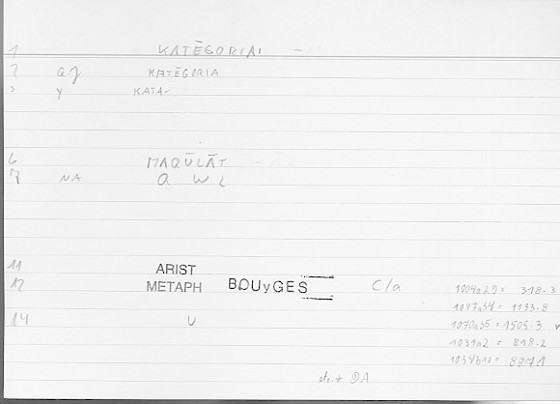 1 KATĒGORIAI -
2 aj KATĒGORIA
3 y KATA-
6 MAQŪLĀT -
7 NA Q W L
11 ARIST
12 METAPH BOUyGES C/a
14 U
1004a29 = 318-3
1047a34 = 1133-8
1070a35 = 1505-3
1031a2 = 818-2
1034b10 =
etc. + DA